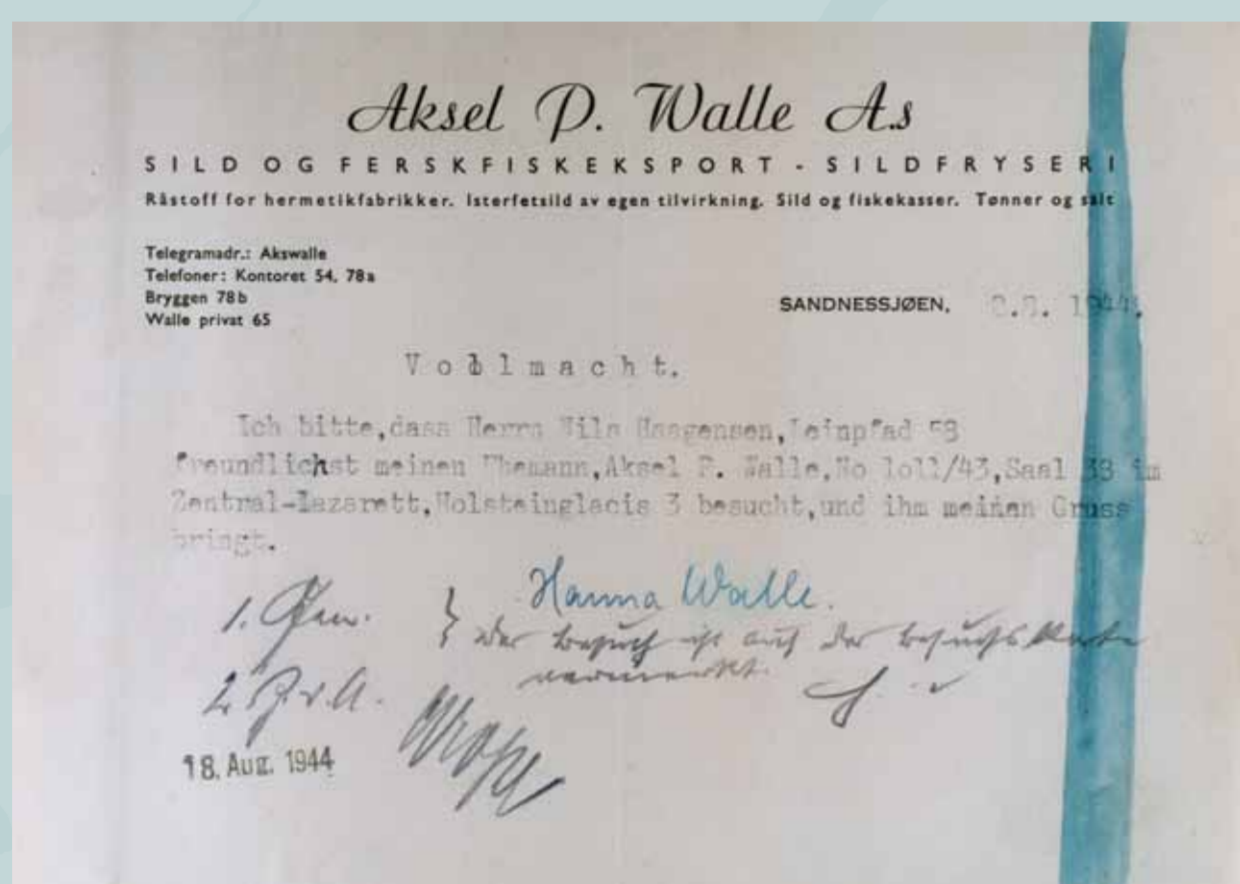 Aksel P. Walle A.s
SILD OG FERSKFISKEKSPORT - SILDFRYSERI
Råstoff for hermetikfabrikker. Isterfetsild av egen tilvirkning. Sild og fiskekasser. Tønner og salt
Telegramadr.: Akswalle
Telefoner: Kontoret 54, 78a
Bryggen 78b
Walle privat 65
SANDNESSJØEN, 1944.
Vollmacht.
Ich bitte, dass Herrn Nils Haagensen, Leinpfad 58
freundlichst meinen Ehemann, Aksel P. Walle, No 1011/43, Saal 38 im
Zentral-Lazarett, Holsteinglacis 3 besucht, und ihm meinen Gruss
bringt.
Hanna Walle.
1.
der Besuch ist auf der Besuchskarte
vermerkt.
2. Z.d.A.
18. Aug. 1944